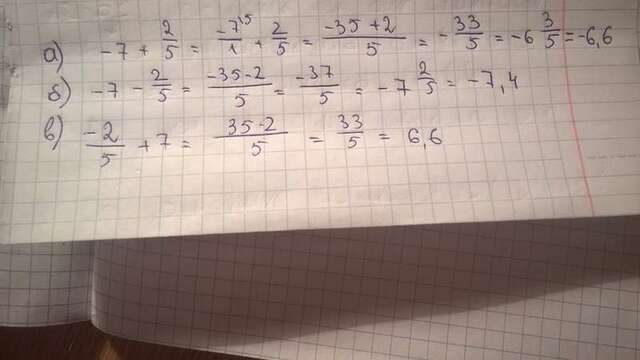 а) -7 + 2/5 = -7^5/1 + 2/5 = -35+2/5 = -33/5 = -6 3/5 = -6,6
б) -7 - 2/5 = -35-2/5 = -37/5 = -7 2/5 = -7,4
в) -2/5 + 7 = 35-2/5 = 33/5 = 6,6